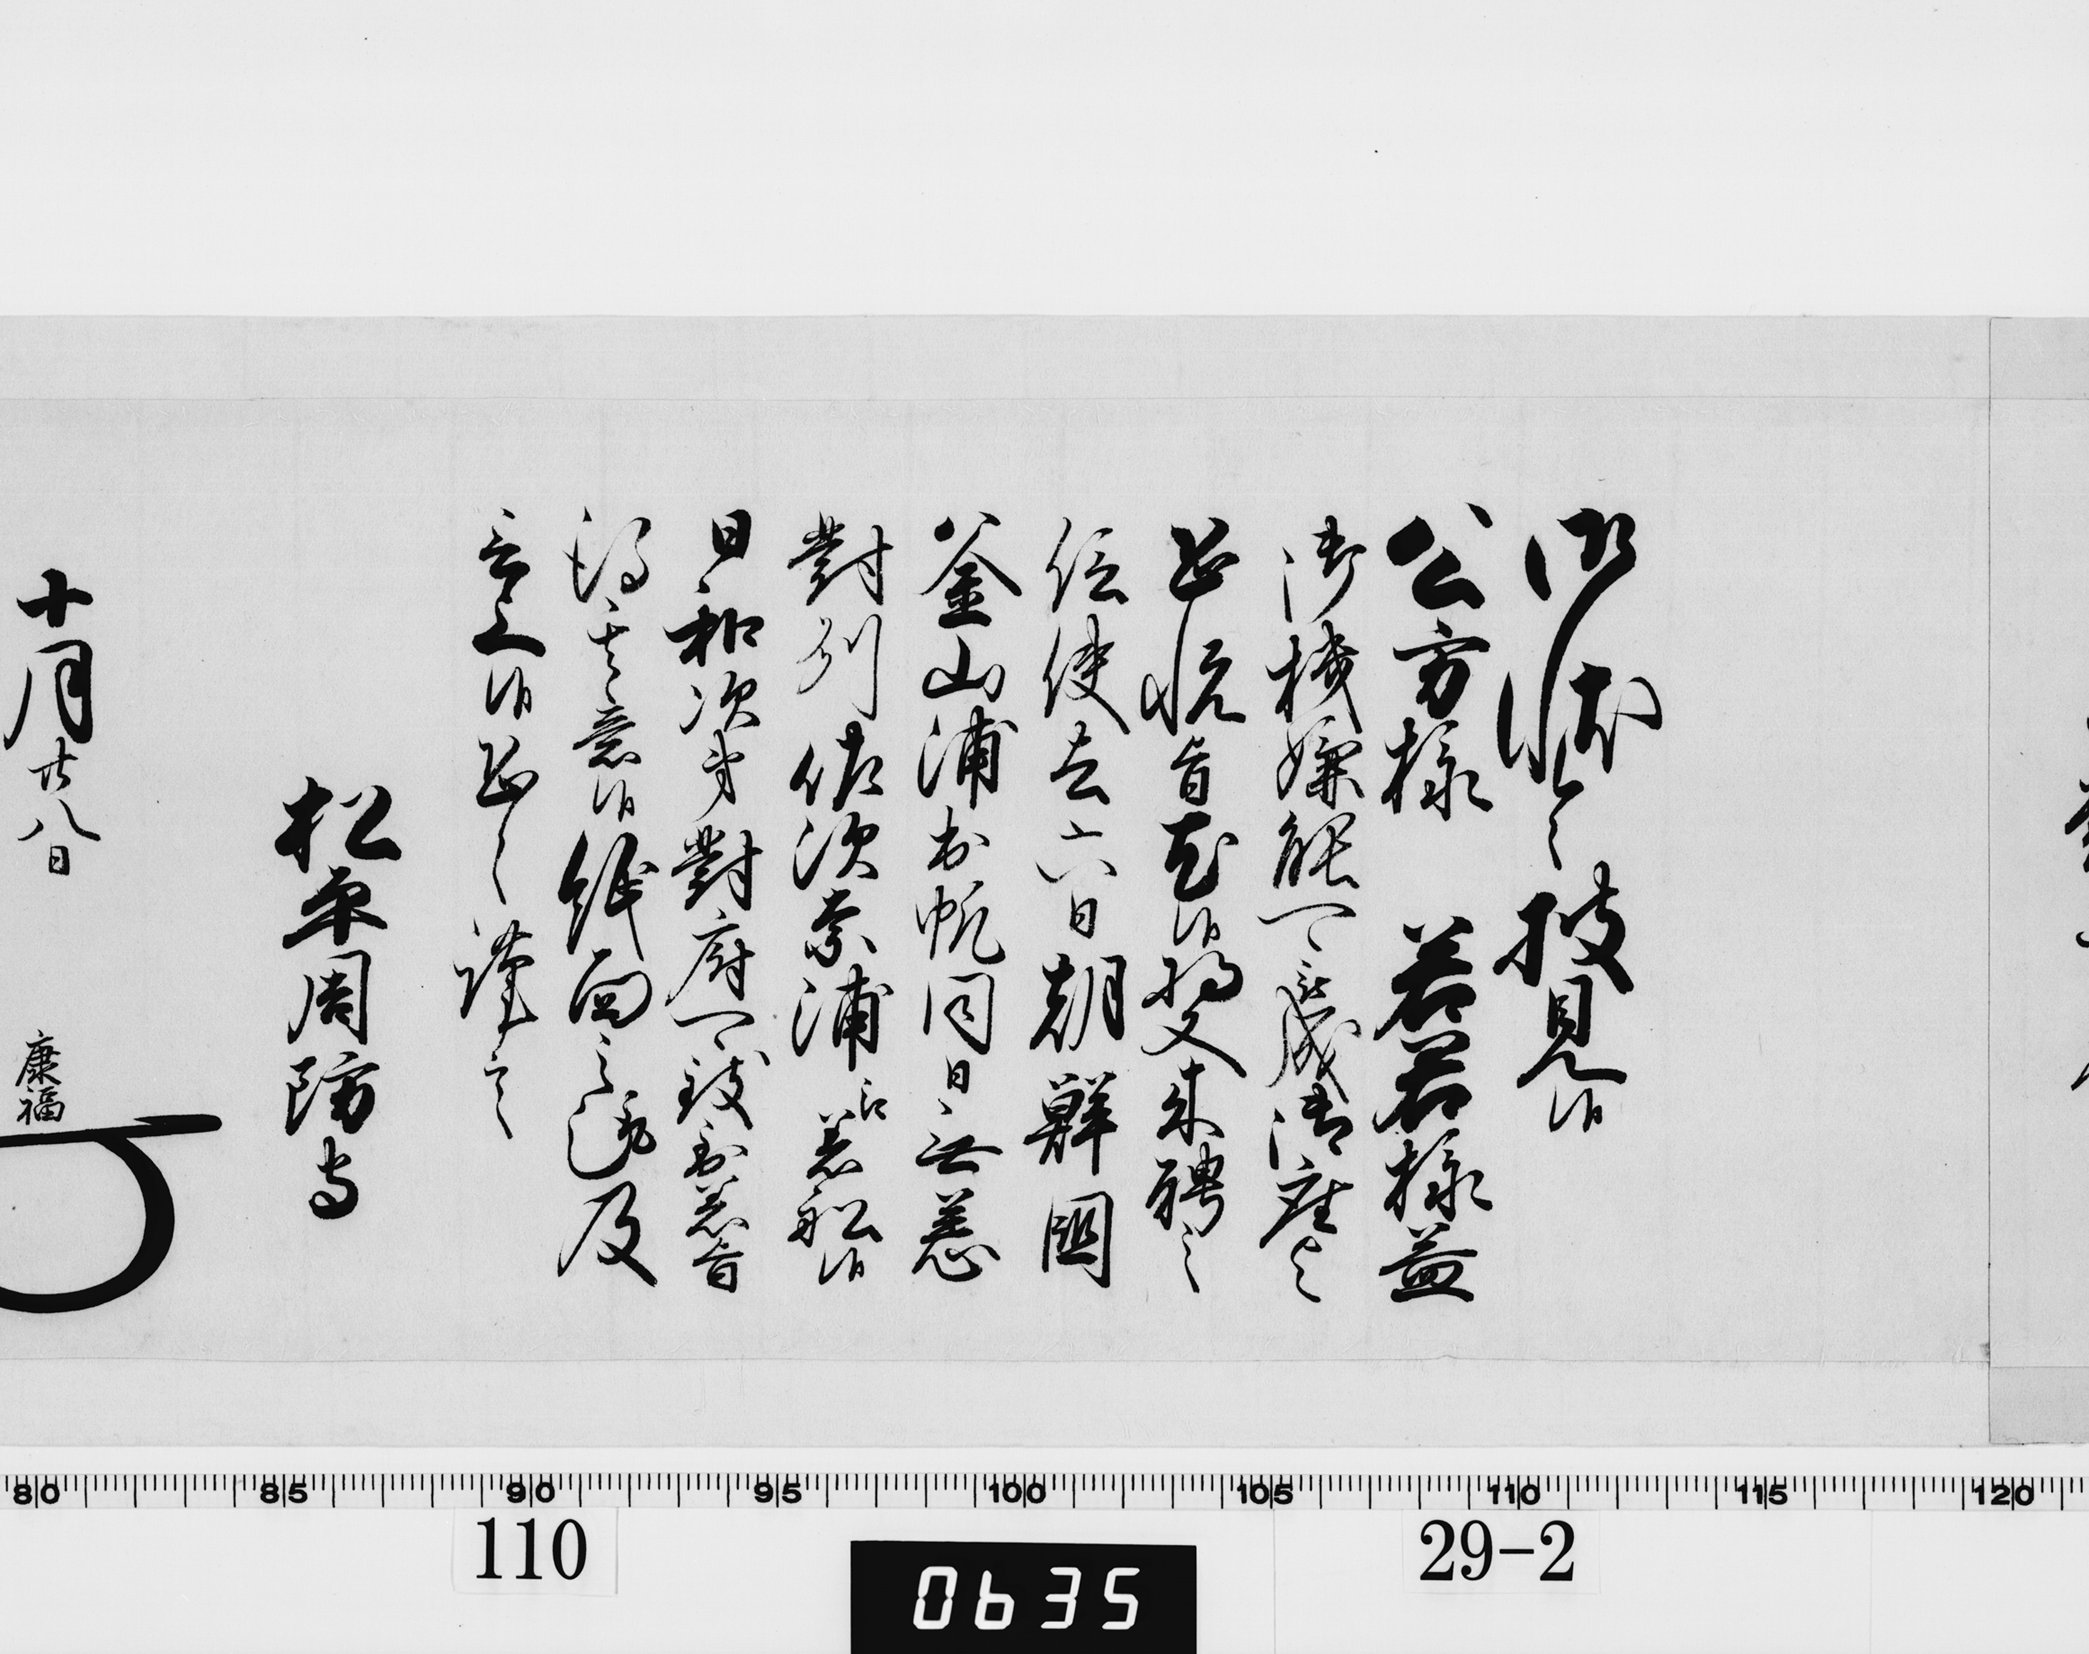 御状令披見候
公方様 若君様益
御機嫌能可被成御座と
恐悦旨尤候将又来聘之
信使去六日朝鮮国
釜山浦出帆同日無恙
對列佐須奈浦江着船候
日和次第對府可致到着旨
得其意候紙面之趣及
言上候恐々謹言
松平周防守
十月廿八日
康福
80 85 90 95 100 105 110 115 120
110
29-2
0635